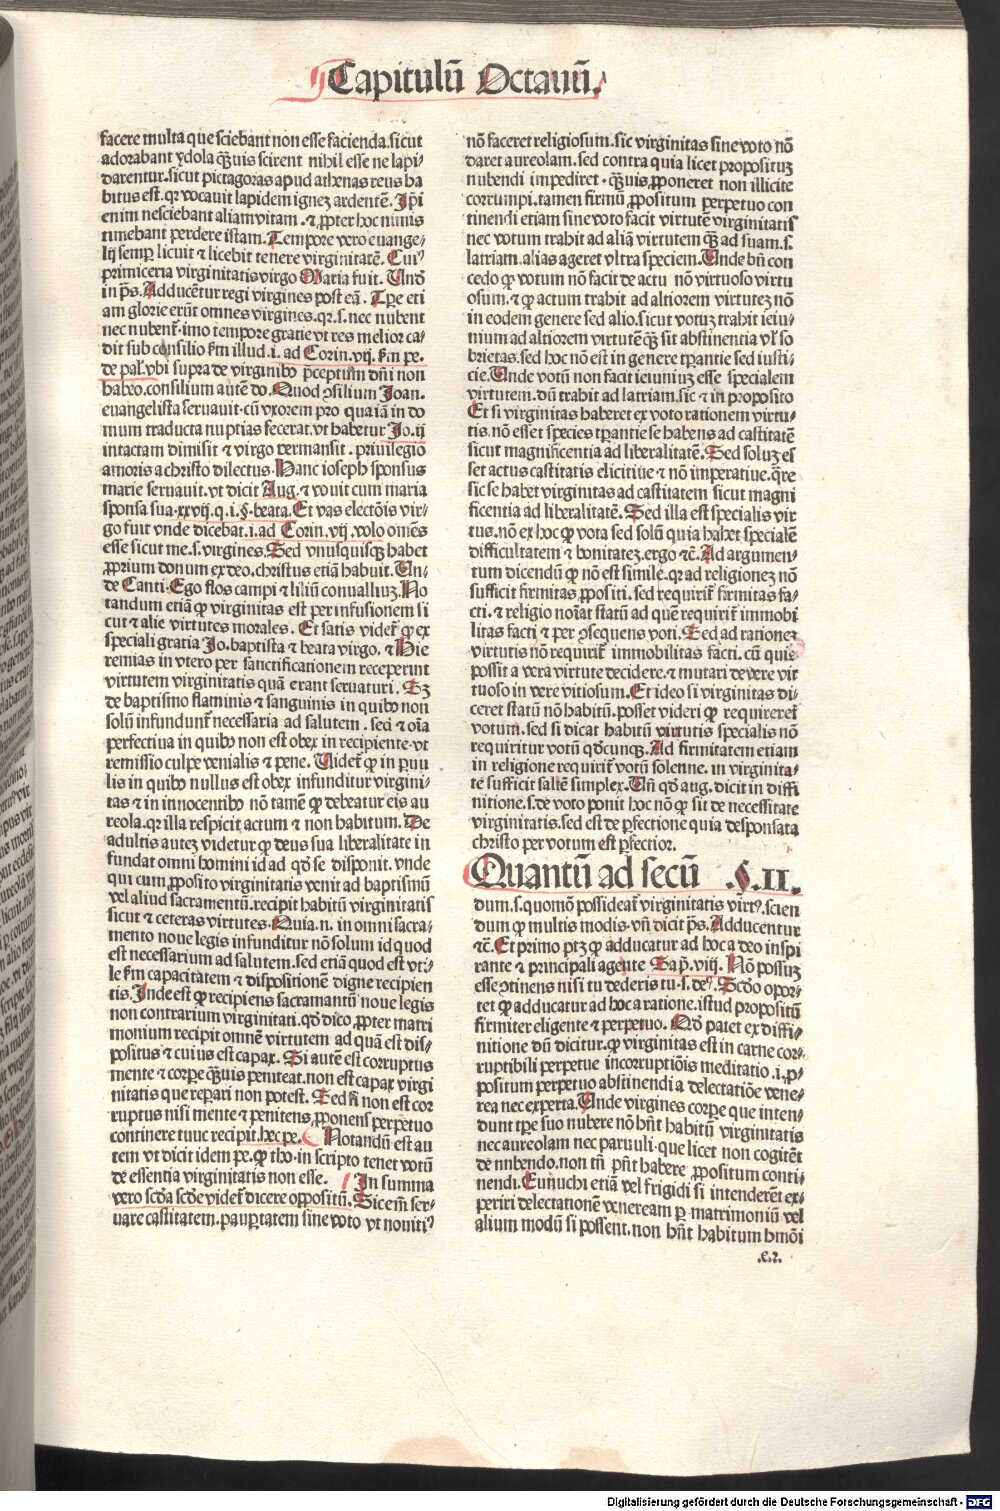 Capitulū Octauū.
facere multa que sciebant non esse facienda.sicut
adorabant ydola q̄uis scirent nihil esse ne lapi-
darentur.sicut pictagoras apud athenas reus ha
bitus est.qr vocauit lapidem ignez ardentē. Ip̄i
enim nesciebant aliam vitam.⁊ ꝓpter hoc nimis
timebant perdere istam.Tempore vero euange-
lij semꝑ licuit ⁊ licebit tenere virginitatē. Cui⁹
primiceria virginitatis virgo Maria fuit. Unđ
in p̄s.Adducētur regi virgines post eā. Tꝑe eti
am glorie erūt omnes virgines.qr.s.nec nubent
nec nubent̄.imo tempore gratie vt res melior ca-
dit sub consilio ẜm illud.i.ad Corin.vij.ẜm pe.
de pal.vbi supra de virginibꝰ p̄ceptum dn̄i non
habeo.consilium autē do.Quod ꝯsilium Joan.
euangelista seruauit.cū vxorem pro qua iā in do
mum traducta nuptias fecerat.vt habetur Jo.ij
intactam dimisit ⁊ virgo permansit.priuilegio
amoris a christo dilectus.Hanc ioseph sponsus
marie seruauit.vt dicit Aug.⁊ vouit cum maria
sponsa sua.xxvij.q.i.§.beata.Et vas electōis vir-
go fuit vnde dicebat.i.ad Corin.vij.volo om̄es
esse sicut me.s.virgines.Sed vnusquisqꝫ habet
ꝓprium donum ex deo.christus etiā habuit.Un-
de Canti.Ego flos campi ⁊ liliū conualliuꝫ.No
tandum etiā ꝙ virginitas est per infusionem si
cut ⁊ alie virtutes morales. Et satis videt̄ ꝙ ex
speciali gratia Jo.baptista ⁊ beata virgo.⁊ Hie
remias in vtero per sanctificationem receperunt
virtutem virginitatis quā erant seruaturi. Sꝫ
de baptismo flaminis ⁊ sanguinis in quibꝰ non
solū infundunt̄ necessaria ad salutem.sed ⁊ oīa
perfectiua in quibꝰ non est obex in recipiente.vt
remissio culpe venialis ⁊ pene. Videt̄ ꝙ in ꝑuu
lis in quibꝰ nullus est obex infunditur virgini-
tas ⁊ in innocentibꝰ nō tamē ꝙ debeatur eis au
reola.qr illa respicit actum ⁊ non habitum. De
adultis autez videtur ꝙ deus sua liberalitate in
fundat omni homini id ad qđ se disponit.vnde
qui cum ꝓposito virginitatis venit ad baptismū
vel aliud sacramentū.recipit habitū virginitatis
sicut ⁊ ceteras virtutes.Quia.n.in omni sacra-
mento noue legis infunditur nō solum id quod
est necessarium ad salutem.sed etiā quod est vti-
le ẜm capacitatem ⁊ dispositionē digne recipien
tis.Inde est ꝙ recipiens sacramentū noue legis
non contrarium virginitati.qđ dico ꝓpter matri
monium recipit omnē virtutem ad quā est dis-
positus ⁊ cuius est capax. Si autē est corruptus
mente ⁊ corꝑe q̄uis peniteat.non est capax virgi
nitatis que reꝑari non potest. Sed si non est cor
ruptus nisi mente ⁊ penitens ꝓponens perpetuo
continere tunc recipit.hec pe. Notandū est au
tem vt dicit idem pe.ꝙ tho.in scripto tenet votū
de essentia virginitatis non esse. In summa
vero scđa scđe videt̄ dicere oppositū.Sic em̄ ser-
uare castitatem.pauꝑtatem sine voto vt nouiti⁹
nō faceret religiosum.sic virginitas sine voto nō
daret aureolam.sed contra quia licet propositū
nubendi impediret.q̄uis ꝓponeret non illicite
corrumpi.tamen firmū ꝓpositum perpetuo con
tinendi etiam sine voto facit virtutē virginitatis
nec votum trahit ad aliā virtutem q̄ȝ ad suam.s.
latriam.alias ageret vltra speciem.Unde bn̄ con
cedo ꝙ votum nō facit de actu nō virtuoso virtu
osum.⁊ ꝙ actum trahit ad altiorem virtuteꝫ nō
in eodem genere sed alio.sicut votuꝫ trahit ieiu-
nium ad altiorem virtutē q̄ȝ sit abstinentia vl' so
brietas.sed hoc nō est in genere tꝑantie sed iusti-
cie.Unde votū non facit ieiuniuꝫ esse specialem
virtutem.dū trahit ad latriam.sic ⁊ in proposito
Et si virginitas haberet ex voto rationem virtu-
tis.nō esset species tꝑantie se habens ad castitatē
sicut magnificentia ad liberalitatē. Sed soluꝫ es
set actus castitatis elicitiue ⁊ nō imperatiue.q̄re
sic se habet virginitas ad castitatem sicut magni
ficentia ad liberalitatē.Sed illa est specialis vir
tus.nō ex hoc ꝙ vota sed solū quia habet specialē
difficultatem ⁊ bonitatez.ergo ⁊c̄. Ad argumen-
tum dicendū ꝙ nō est simile.qr ad religionez nō
sufficit firmitas ꝓpositi.sed requirit̄ firmitas fa-
cti.⁊ religio noīat statū ad quē requirit̄ immobi
litas facti ⁊ per ꝯsequens voti. Sed ad rationez
virtutis nō requirit̄ immobilitas facti.cū quis
possit a vera virtute decidere.⁊ mutari de vere vir
tuoso in vere vitiosum.Et ideo si virginitas di-
ceret statū nō habitū.posset videri ꝙ requireret̄
votum.sed si dicat habitū virtutis specialis nō
requiritur votū qđcunqꝫ. Ad firmitatem etiam
in religione requirit̄ votū solenne.in virginita-
te sufficit saltē simplex.Un̄ qđ aug.dicit in diffi
nitione.s.de voto ponit hoc nō ꝙ sit de necessitate
virginitatis.sed est de ꝑfectione quia desponsata
christo per votum est ꝑfectior.
Quantū ad secū .§.II.
dum.s.quomō possideat̄ virginitatis virt⁹.scien
dum ꝙ multis modis.vn̄ dicit p̄s.Adducentur
⁊c̄.Et primo ptꝫ ꝙ adducatur ad hoc a deo inspi
rante ⁊ principali agente Sap̄.viij. Nō possuꝫ
esse ꝯtinens nisi tu dederis tu.s.de⁹. Scđo opor-
tet ꝙ adducatur ad hoc a ratione.istud propositū
firmiter eligente ⁊ perpetuo. Qđ patet ex diffi-
nitione dū dicitur.ꝙ virginitas est in carne cor-
ruptibili perpetue incorruptiōis meditatio.i.ꝓ-
positum perpetuo abstinendi a delectatiōe vene-
rea nec experta.Unde virgines corꝑe que inten-
dunt tꝑe suo nubere nō hn̄t habitū virginitatis
nec aureolam nec paruuli.que licet non cogitēt
de nubendo.non tn̄ pn̄t habere ꝓpositum conti-
nendi. Eunuchi etiā vel frigidi si intenderēt ex-
periri delectationē veneream ꝑ matrimoniū vel
alium modū si possent.non hn̄t habitum hmōi
.e.2.
Digitalisierung gefördert durch die Deutsche Forschungsgemeinschaft - DFG